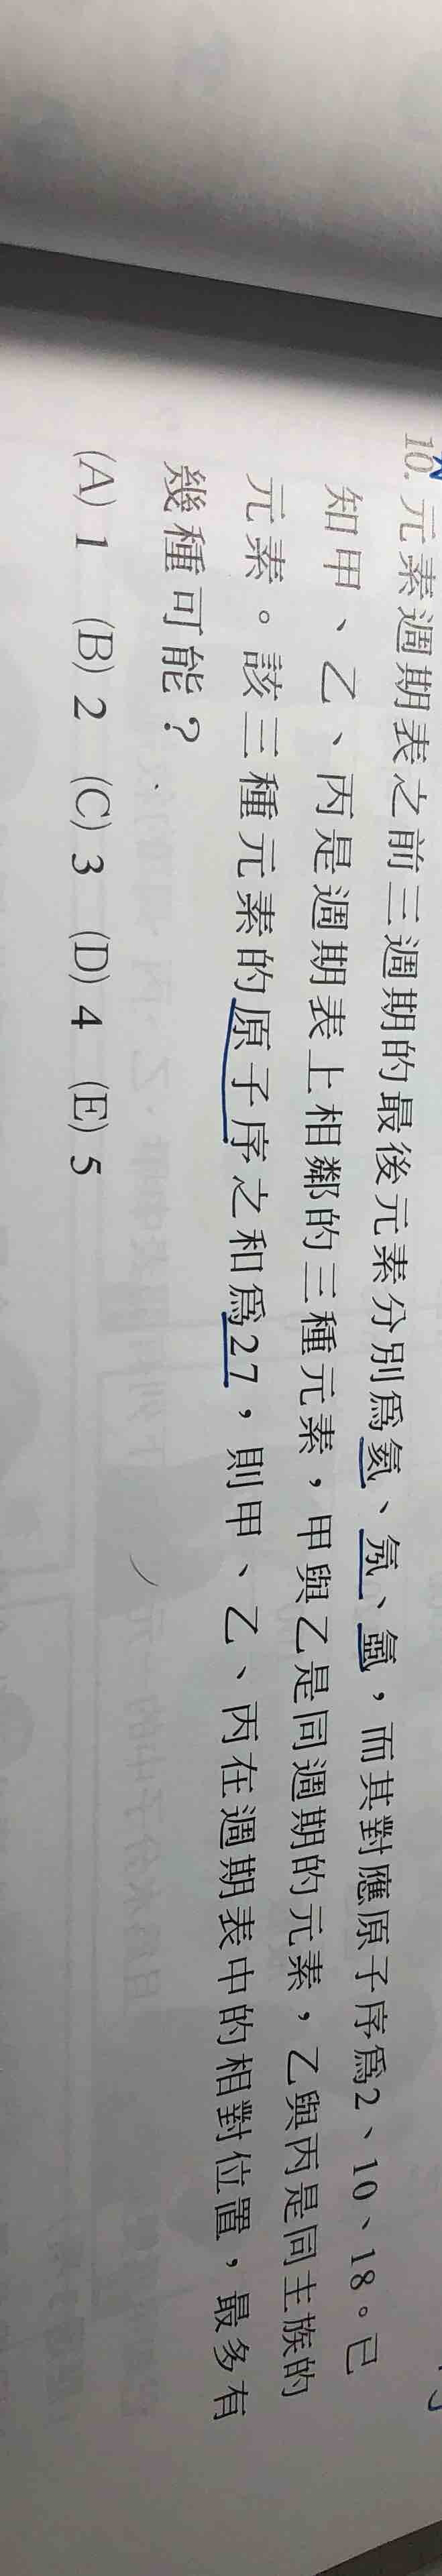 10. 元素週期表之前三週期的最後元素分別為氦、氖、氬，而其對應原子序為2、10、18。已
知甲、乙、丙是週期表上相鄰的三種元素，甲與乙是同週期的元素，乙與丙是同主族的
元素。該三種元素的原子序之和為27，則甲、乙、丙在週期表中的相對位置，最多有
幾種可能？
(A) 1 (B) 2 (C) 3 (D) 4 (E) 5